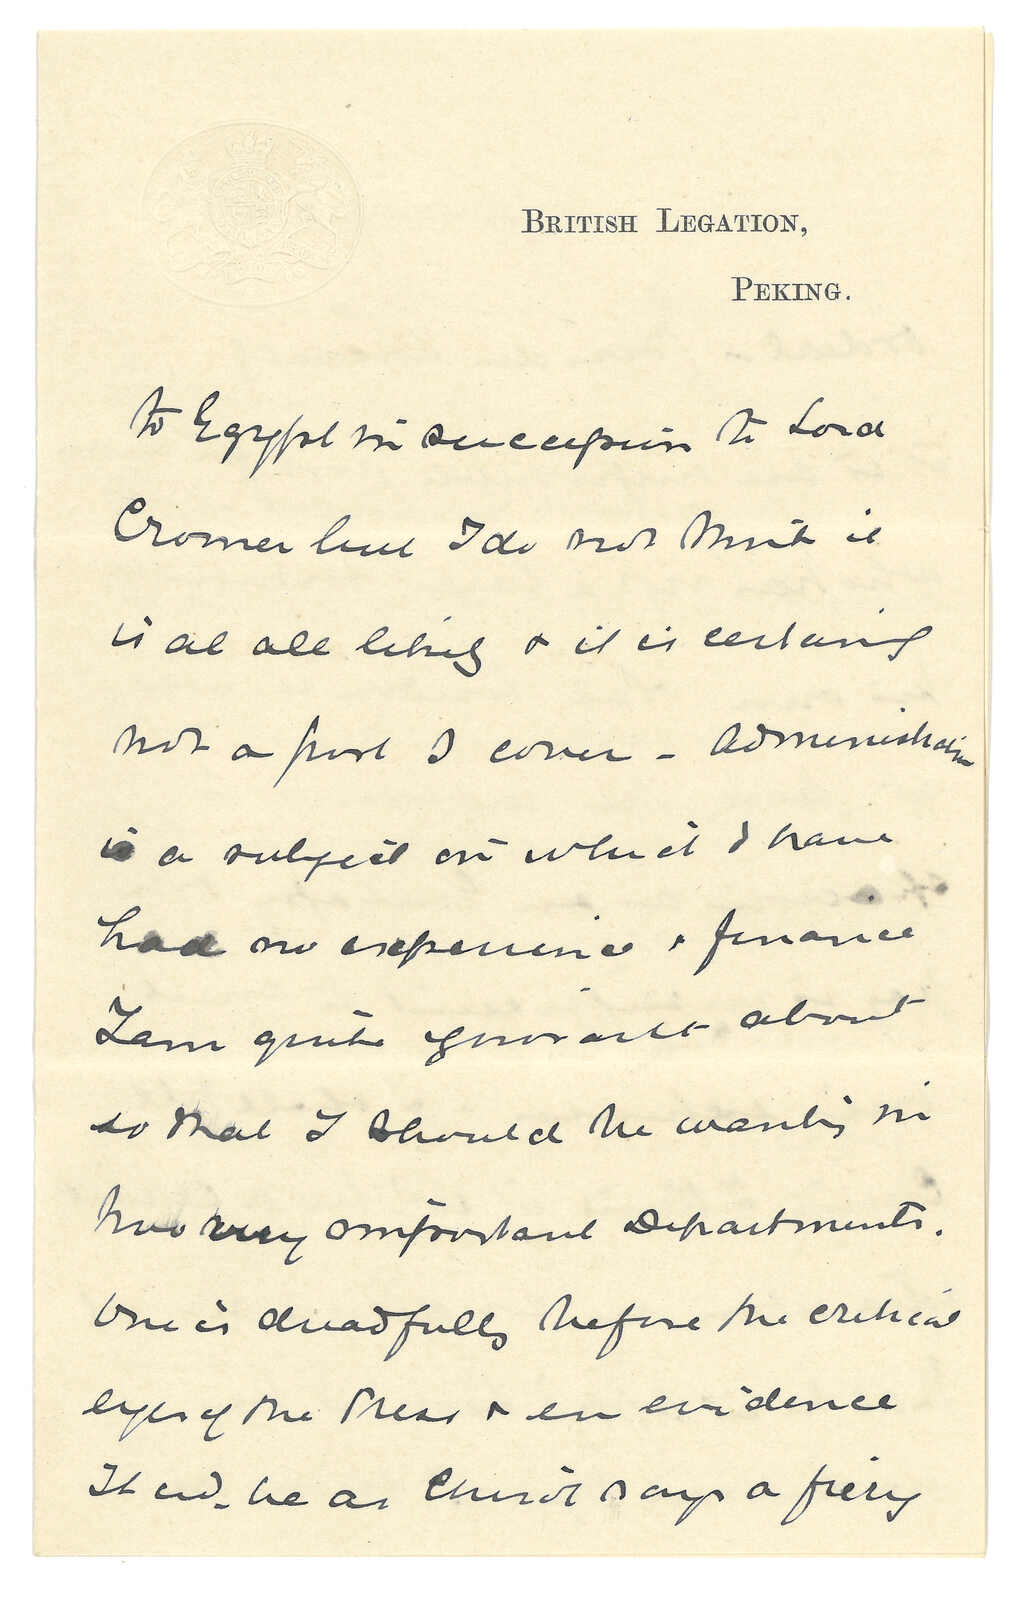 BRITISH LEGATION,
PEKING.
to Egypt in succession to Lord
Cromer but I do not think it
is at all likely & it is certainly
not a post I covet - Administration
is a subject on which I have
had no experience & finance
I am quite ignorant about
so that I should be wanting in
two very important Departments.
One is dreadfully before the critical
eyes of the Press & en evidence
It wd. be as says a fiery